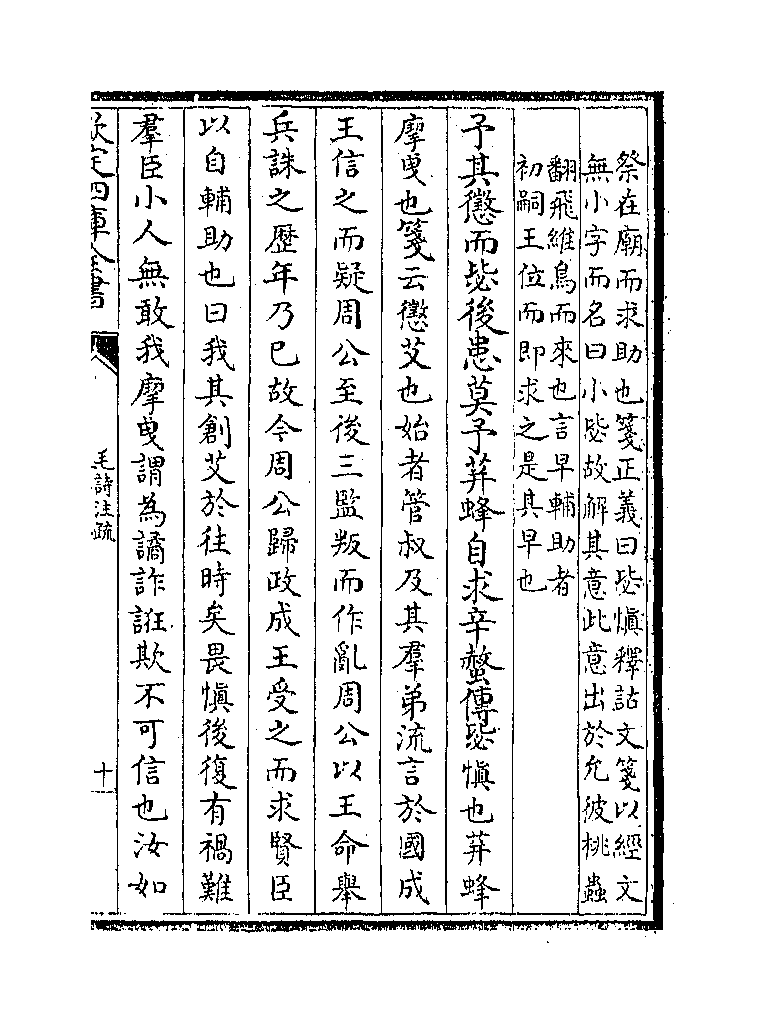 祭在廟而求助也箋正義曰毖慎釋詁文箋以經文
無小字而名曰小毖故解其意此意出於允彼桃蟲
翻飛維鳥而來也言早輔助者
初嗣王位而即求之是其早也
予其懲而毖後患莫予荓蜂自求辛螫傳毖慎也荓蜂
摩曳也箋云懲艾也始者管叔及其羣弟流言於國成
王信之而疑周公至後三監叛而作亂周公以王命舉
兵誅之歷年乃已故今周公歸政成王受之而求賢臣
以自輔助也曰我其創艾於往時矣畏慎後復有禍難
羣臣小人無敢我摩曳謂為譎詐誑欺不可信也汝如
欽定四庫全書
毛詩注疏
十